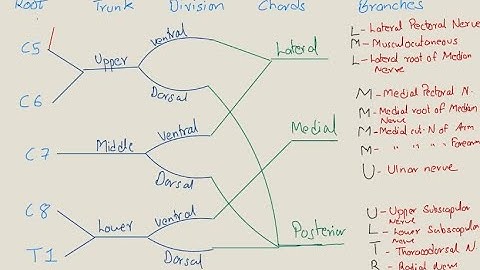 Root Trunk Division Chords Branches
C5
C6
C7
C8
T1
Upper
Middle
Lower
ventral
Dorsal
ventral
Dorsal
ventral
Dorsal
Lateral
Medial
Posterior
L - Lateral Pectoral Nerve
M - Musculocutaneous
L - Lateral root of Median
Nerve
M - Medial Pectoral N.
M - Medial root of Median
Nerve
M - Medial cut. N of Arm
M - " " " " Forearm
U - Ulnar nerve
U - Upper Subscapular
nerve
L - Lower Subscapular
nerve
T - Thoracodorsal N.
R - Radial Nerve